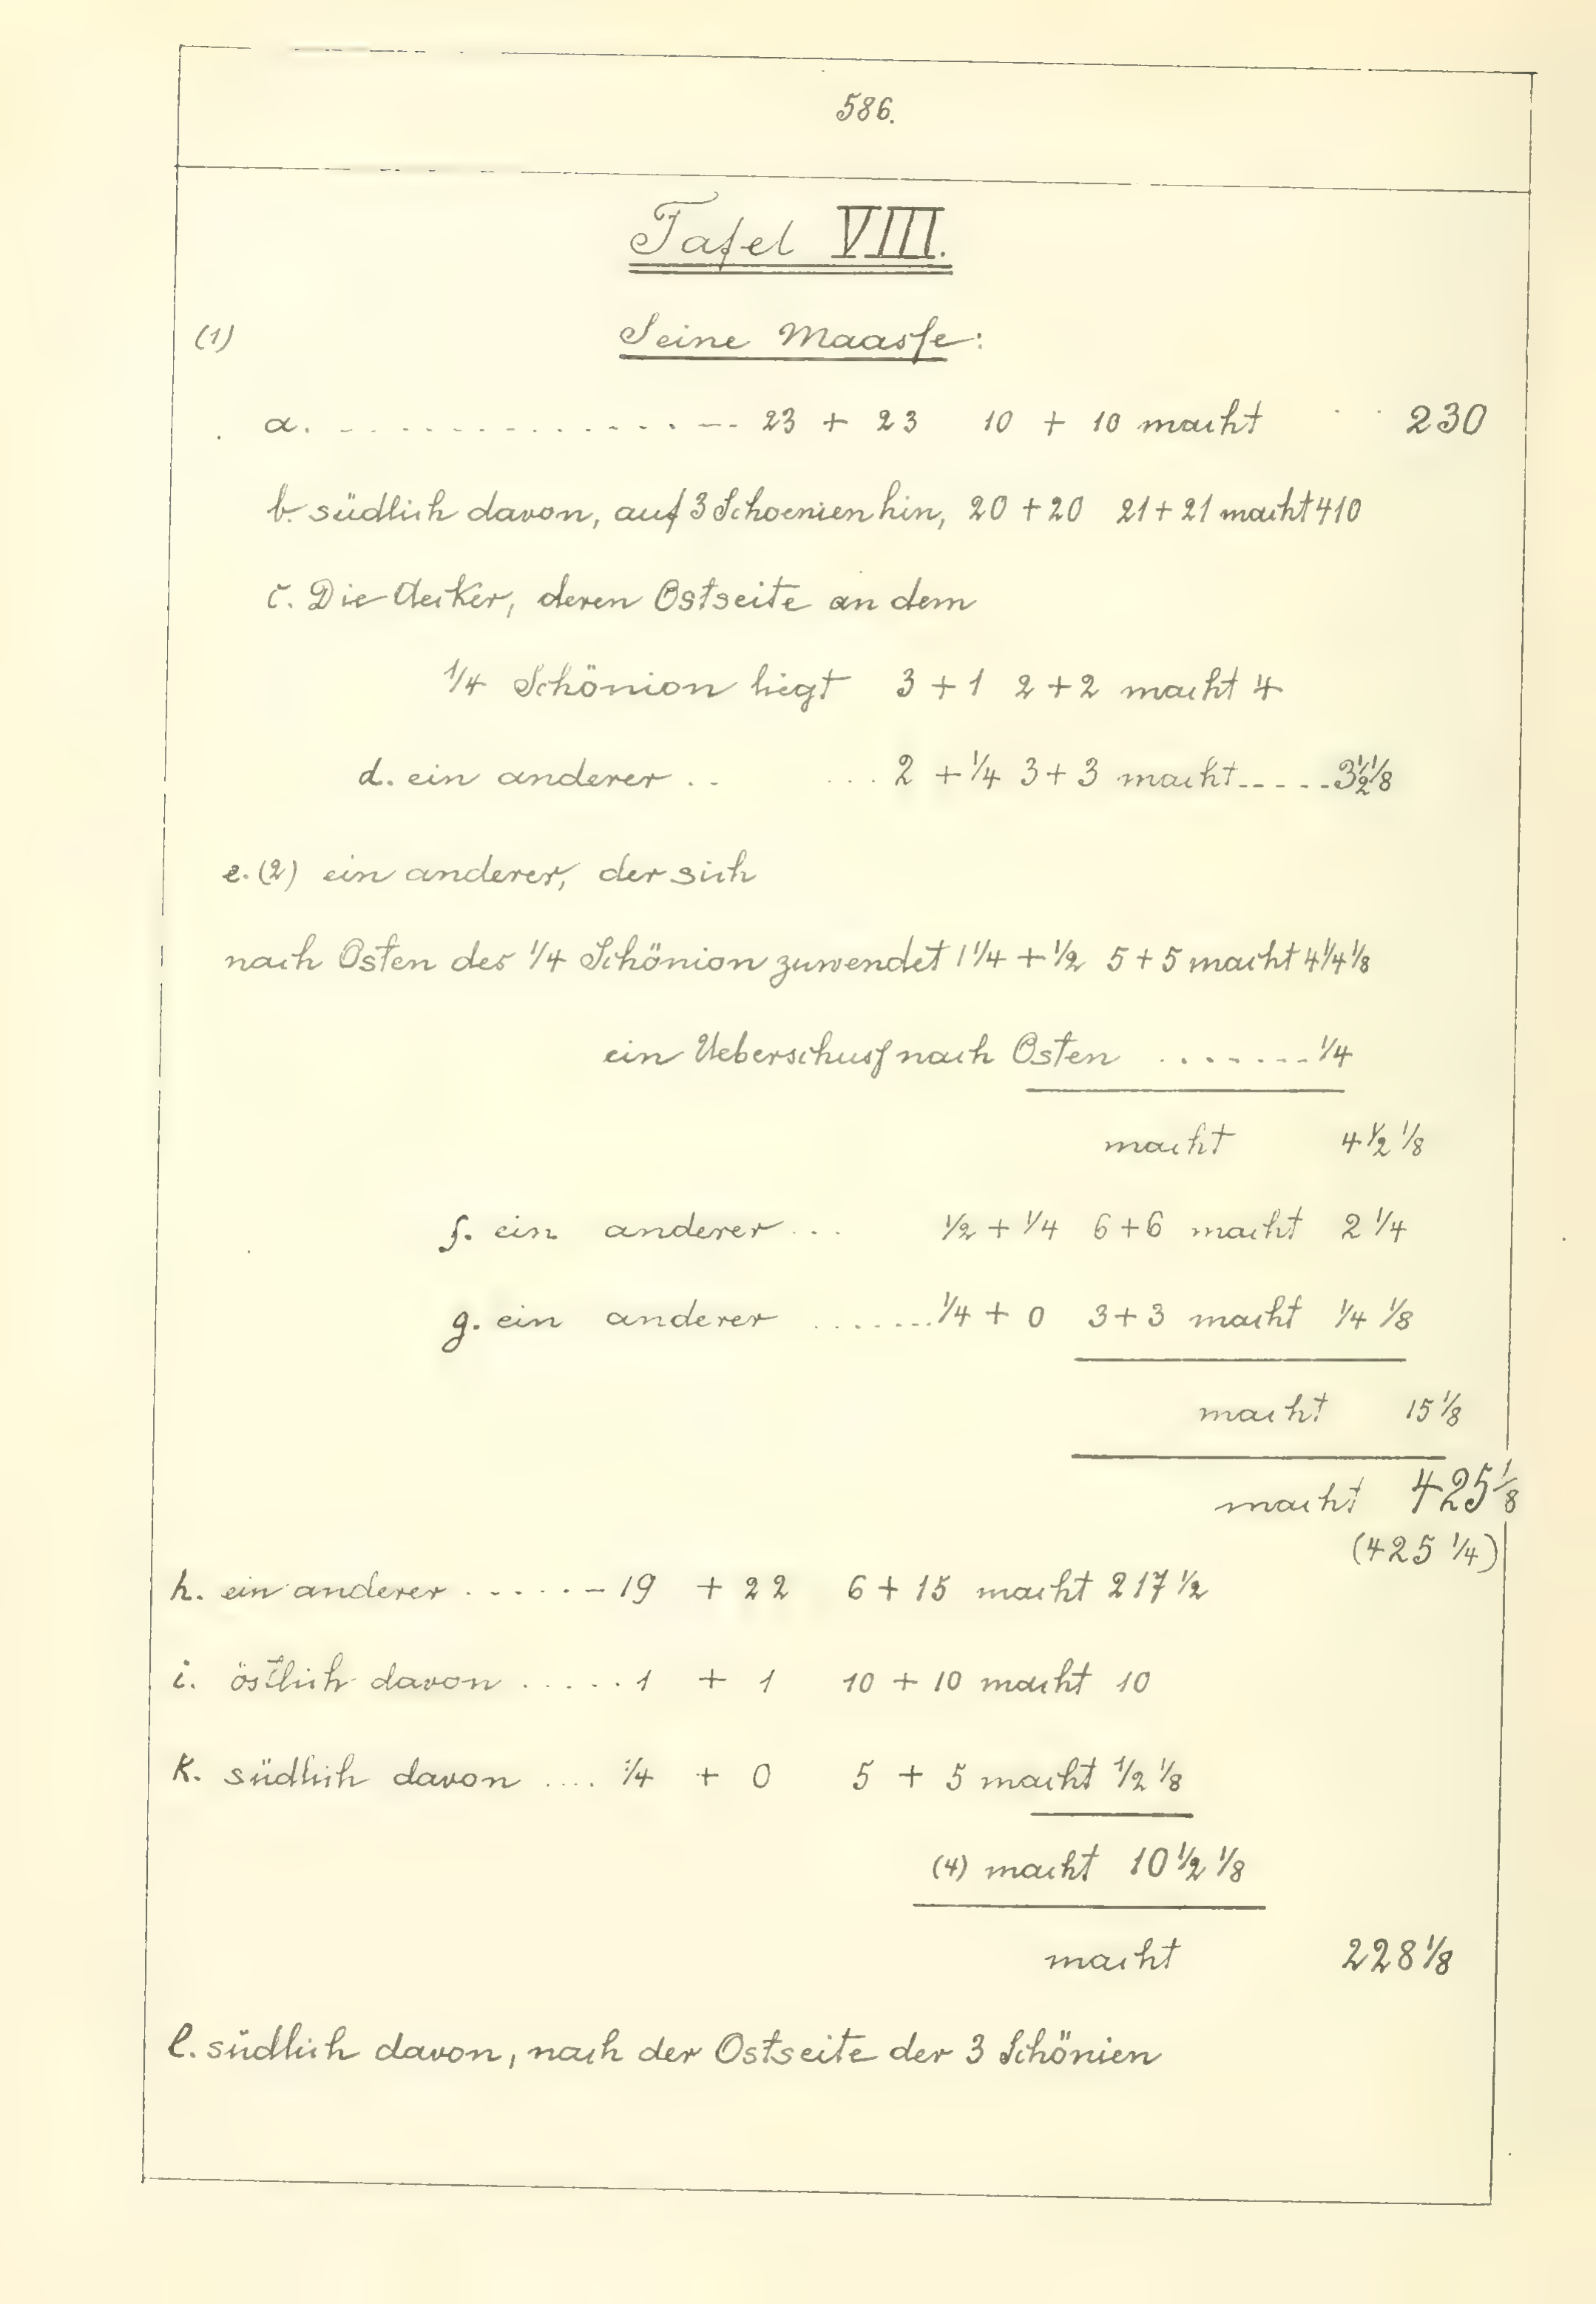 586.
Tafel VIII.
(1) Seine Maasſe:
a. - - - - - - - - - - - - - - - 23 + 23 10 + 10 macht 230
b. südlich davon, auf 3 Schoenien hin, 20 + 20 21 + 21 macht 410
c. Die Aecker, deren Ostseite an dem
1/4 Schönion liegt 3 + 1 2 + 2 macht 4
d. ein anderer .. ... 2 + 1/4 3 + 3 macht.....3 1/2 1/8
e. (2) ein anderer, der sich
nach Osten des 1/4 Schönion zuwendet 1 1/4 + 1/2 5 + 5 macht 4 1/4 1/8
ein Ueberschuſs nach Osten ....... 1/4
macht 4 1/2 1/8
f. ein anderer ... 1/2 + 1/4 6 + 6 macht 2 1/4
g. ein anderer ....... 1/4 + 0 3 + 3 macht 1/4 1/8
macht 15 1/8
macht 425 1/8
(425 1/4)
h. ein anderer ...... 19 + 22 6 + 15 macht 217 1/2
i. östlich davon ..... 1 + 1 10 + 10 macht 10
K. südlich davon .... 1/4 + 0 5 + 5 macht 1/2 1/8
(4) macht 10 1/2 1/8
macht 228 1/8
l. südlich davon, nach der Ostseite der 3 Schönien